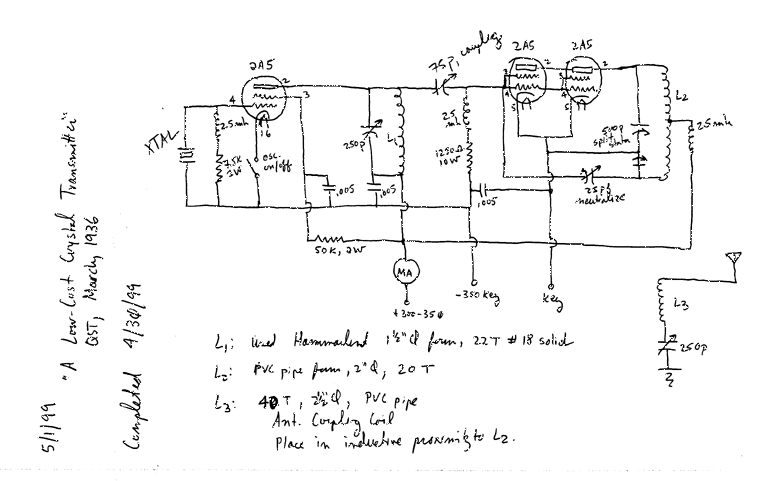 5/1/99
"A Low-Cost Crystal Transmitter"
QST, March, 1936
Completed 4/30/99
2A5
2
3
4
16
XTAL
2.5mh
7.5K
2W
osc.
on/off
250p
L1
.005
.005
50K, 2W
MA
+300-350
75p, coupling
2.5
mh
1250Ω
10W
.005
-350 key
key
2A5
2A5
2
2
3
3
4
4
5
5
L2
500p
split stator
25pf
neutralize
2.5mh
L3
250p
L1: Used Hammarlund 1½"Ø form, 22T #18 solid
L2: PVC pipe form, 2"Ø, 20T
L3: 40T, 2½"Ø, PVC pipe
Ant. Coupling Coil
Place in inductive proximity to L2.